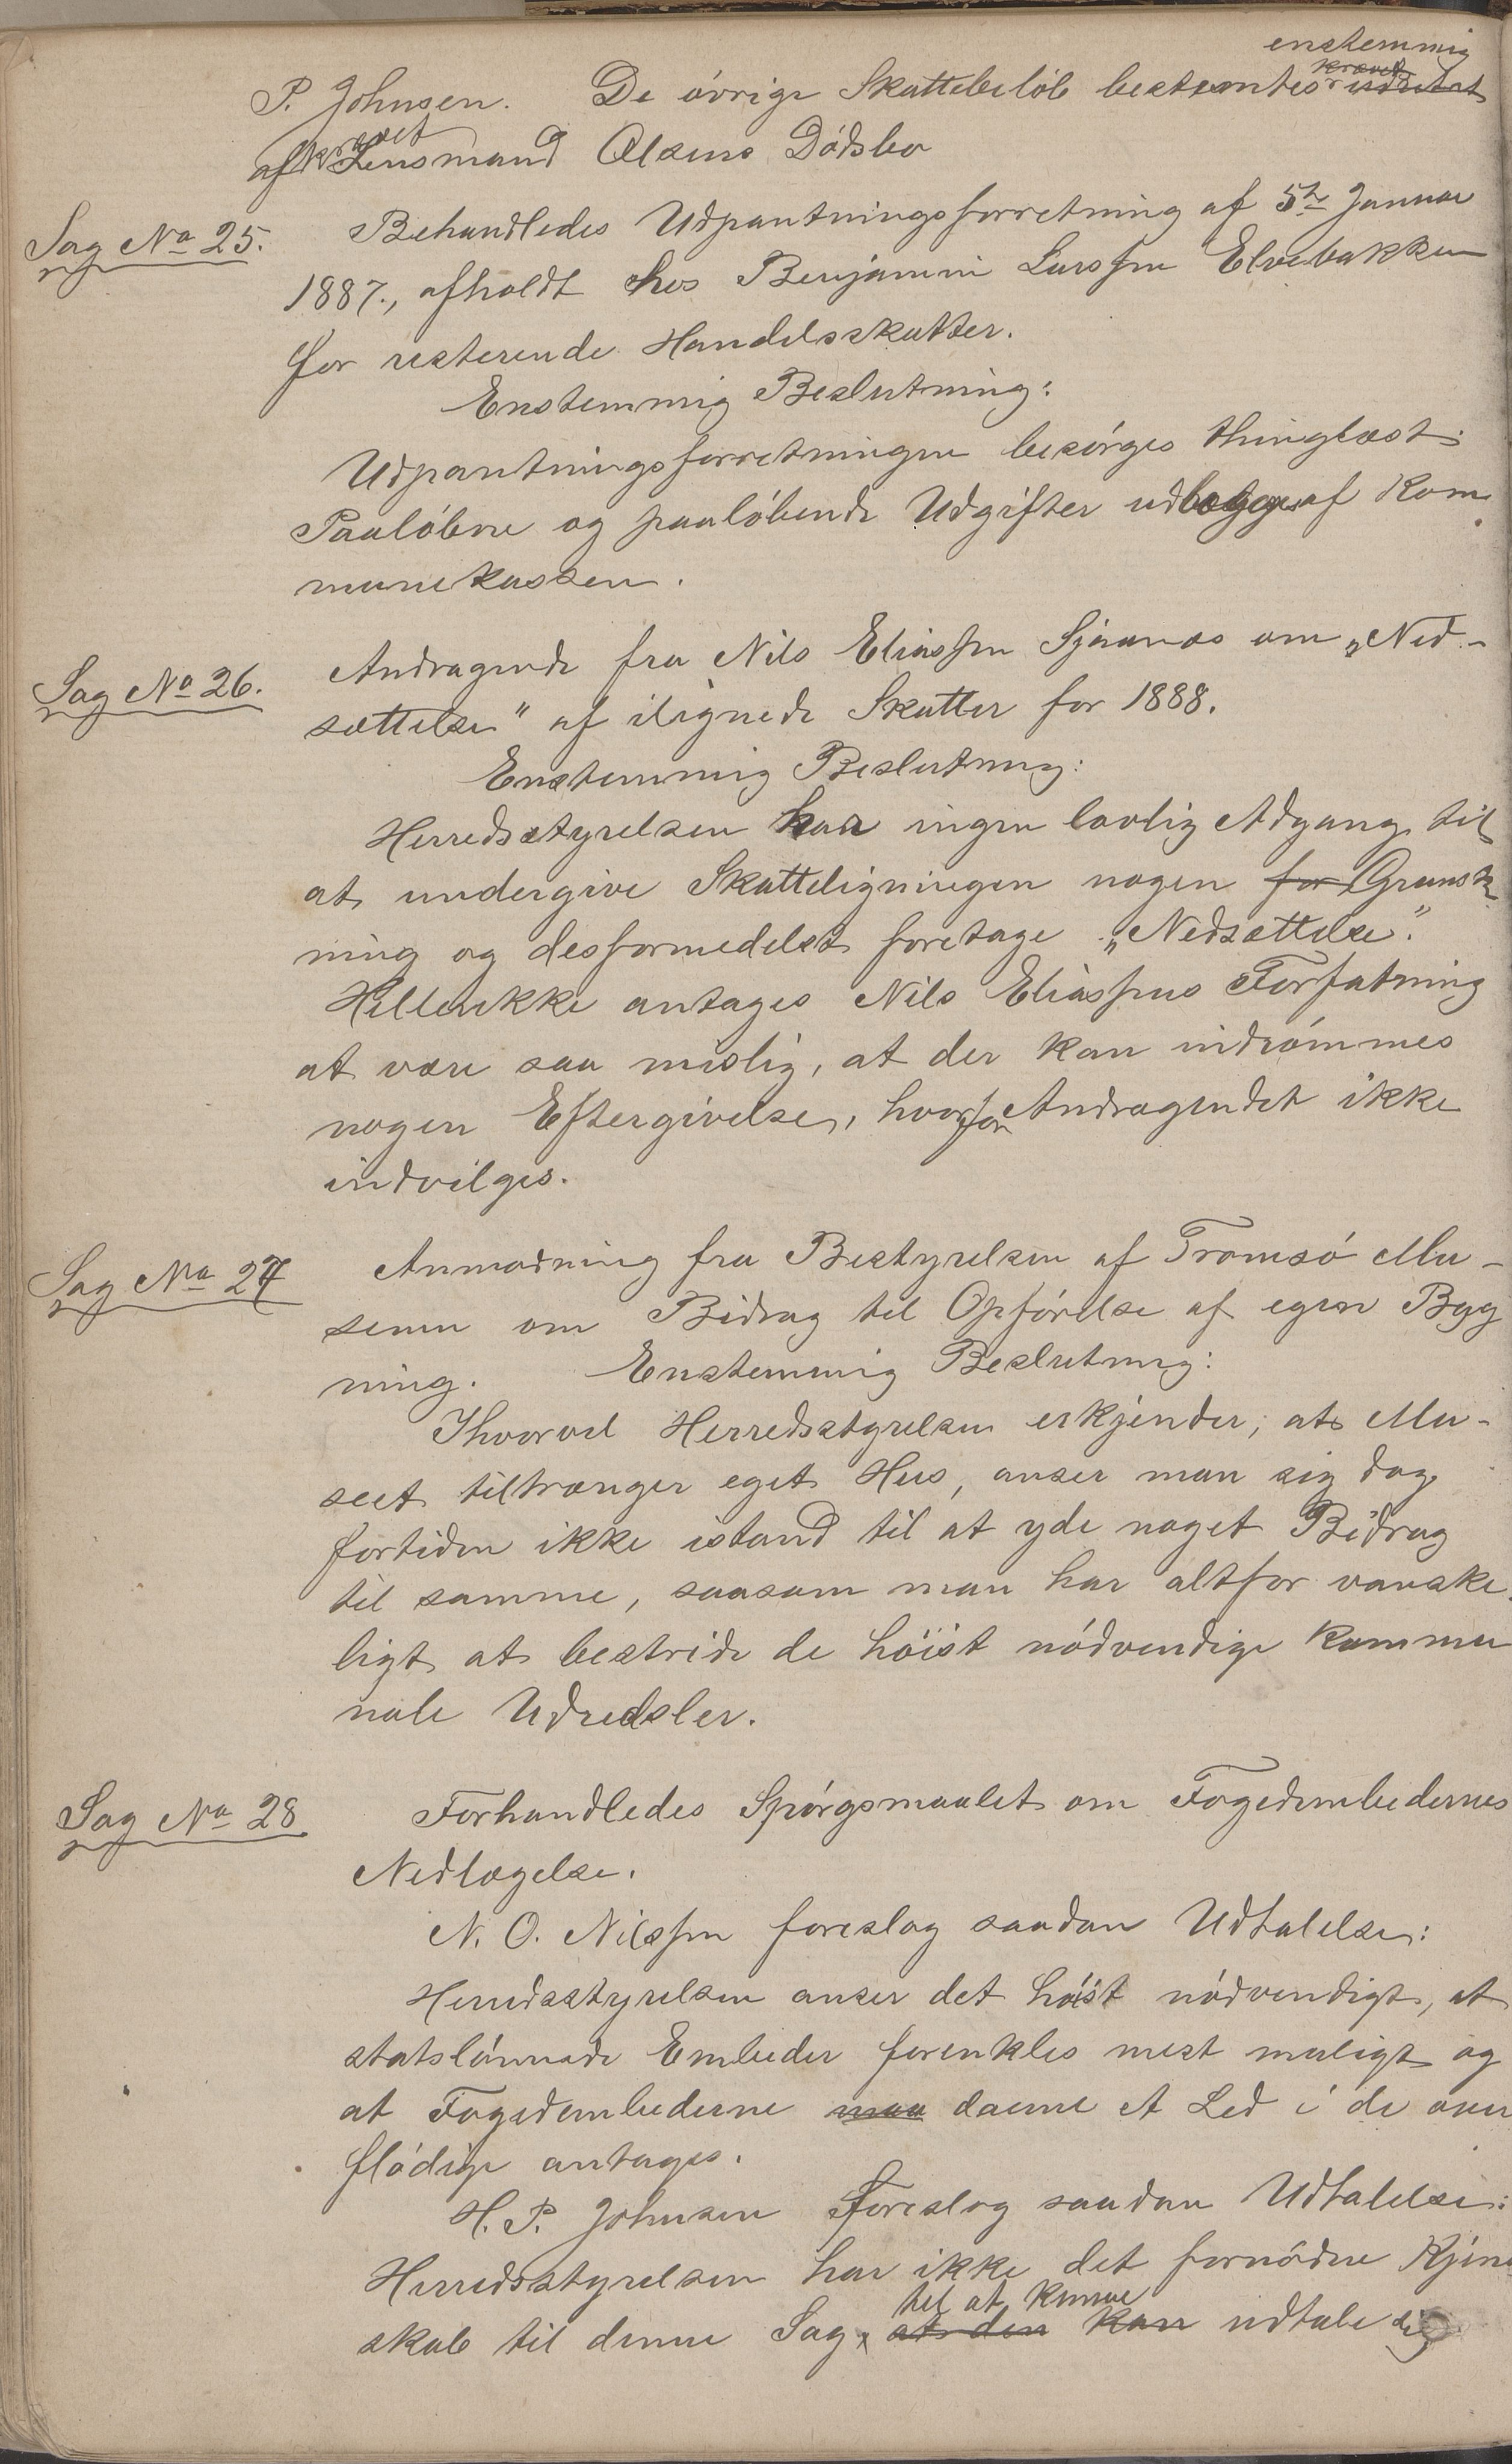 enstemmig
P. Johnsen. De övrige Skattebelöb bestemtes
krævet
af Lensmand Olsens Dödsbo
Sag No 25. Behandledes Udpantningsforretning af 5te Januar
1887., afholdt hos Benjamin Larssen Elvebakken
for resterende Handelsskatter.
Enstemmig Beslutning:
Udpantningsforretningen besörges thinglæst.
Paalöbne og paalöbende Udgifter udlægges af Kom
munekassen.
Sag No 26. Andragende fra Nils Eliassen Sjaanæs om „Ned-
sættelse" af ilignede Skatter for 1888.
Enstemmig Beslutning:
Herredsstyrelsen har ingen lovlig Adgang til
at undergive Skatteligningen nogen for Gransk
ning og desformedelst foretage „Nedsættelse".
Hellerikke antages Nils Eliassens Forfatning
at være saa mislig, at der kan indrömmes
nogen Eftergivelse, hvorfor Andragendet ikke
indvilges.
Sag No 27 Anmodning fra Bestyrelsen af Tromsö Mu-
seum om Bidrag til Opförelse af egen Byg
ning. Enstemmig Beslutning:
Ihvorvel Herredsstyrelsen erkjender, at Mu-
seet tiltrænger eget Hus, anser man sig dog
fortiden ikke istand til at yde noget Bidrag
til samme, saasom man har altfor vanske-
ligt at bestride de höist nödvendige kommu
nale Udredsler.
Sag No 28 Forhandledes Spörgsmaalet om Fogedembedernes
Nedlæggelse.
N. O. Nilssen foreslog saadan Udtalelse:
Herredsstyrelsen anser det höist nödvendigt, at
statslönnede Embeder forenkles mest muligt og
at Fogedembederne maa danne et Led i de over
flödige antages.
H. P. Johnsen Foreslog saadan Udtalelse:
Herredsstyrelsen har ikke det fornödne Kjend
til at kunne
skab til denne Sag, at den kan udtale sig